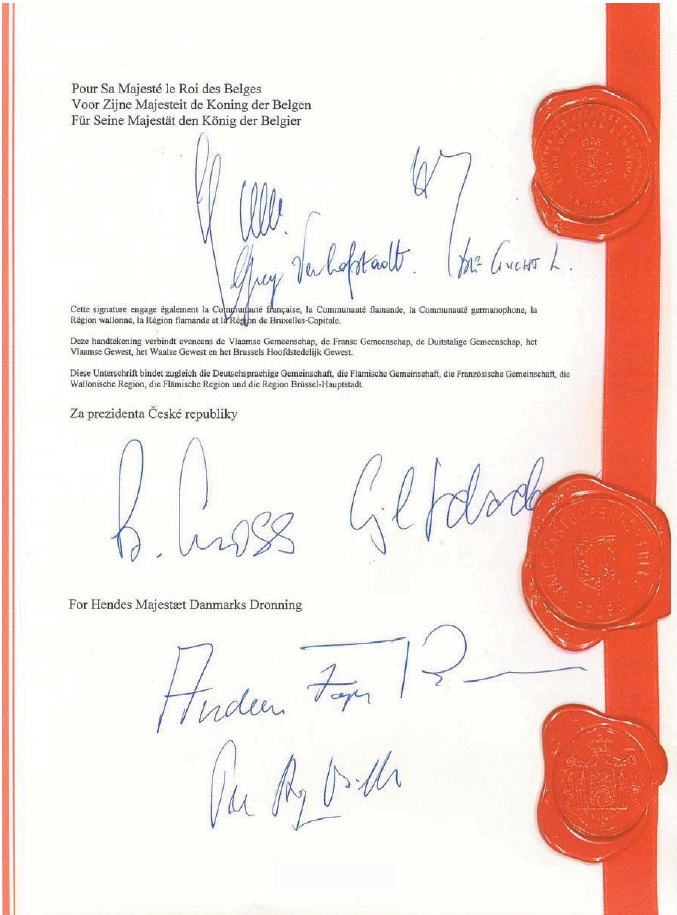 Pour Sa Majesté le Roi des Belges
Voor Zijne Majesteit de Koning der Belgen
Für Seine Majestät den König der Belgier
Guy Verhofstadt. De Gucht L.
Cette signature engage également la Communauté française, la Communauté flamande, la Communauté germanophone, la
Région wallonne, la Région flamande et la Région de Bruxelles-Capitale.
Deze handtekening verbindt eveneens de Vlaamse Gemeenschap, de Franse Gemeenschap, de Duitstalige Gemeenschap, het
Vlaamse Gewest, het Waalse Gewest en het Brussels Hoofdstedelijk Gewest.
Diese Unterschrift bindet zugleich die Deutschsprachige Gemeinschaft, die Flämische Gemeinschaft, die Französische Gemeinschaft, die
Wallonische Region, die Flämische Region und die Region Brüssel-Hauptstadt.
Za prezidenta České republiky
For Hendes Majestæt Danmarks Dronning